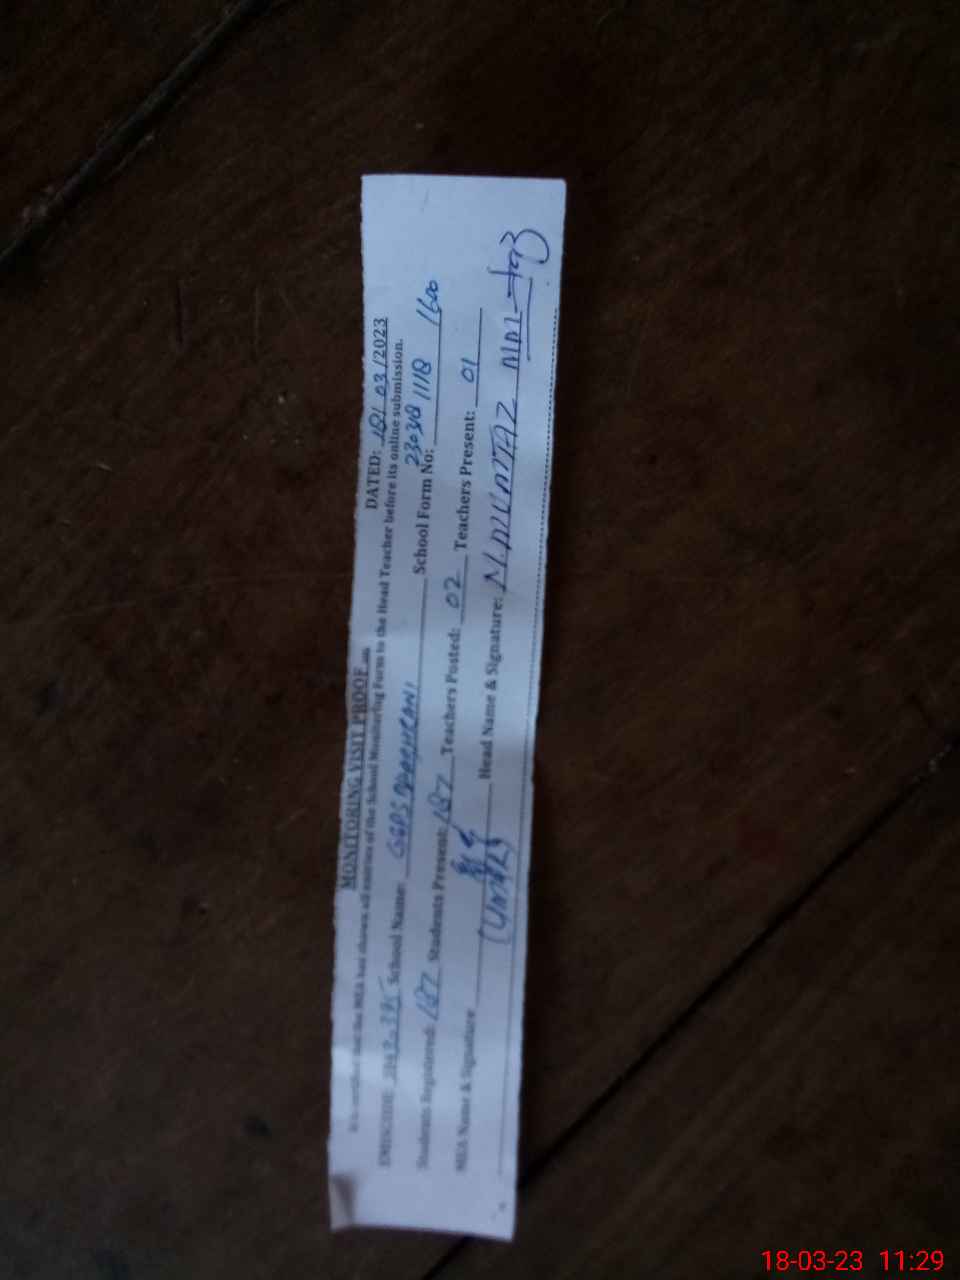 MONITORING VISIT PROOF
DATED: 18/ 03 /2023
It is certified that the MEA has shown all entries of the School Monitoring Form to the Head Teacher before its online submission.
EMISCODE School Name: GGPS School Form No: 230318 1118 1600
Students Registered: 187 Students Present: 187 Teachers Posted: 02 Teachers Present: 01
MEA Name & Signature Head Name & Signature: MUMTAZ
18-03-23 11:29